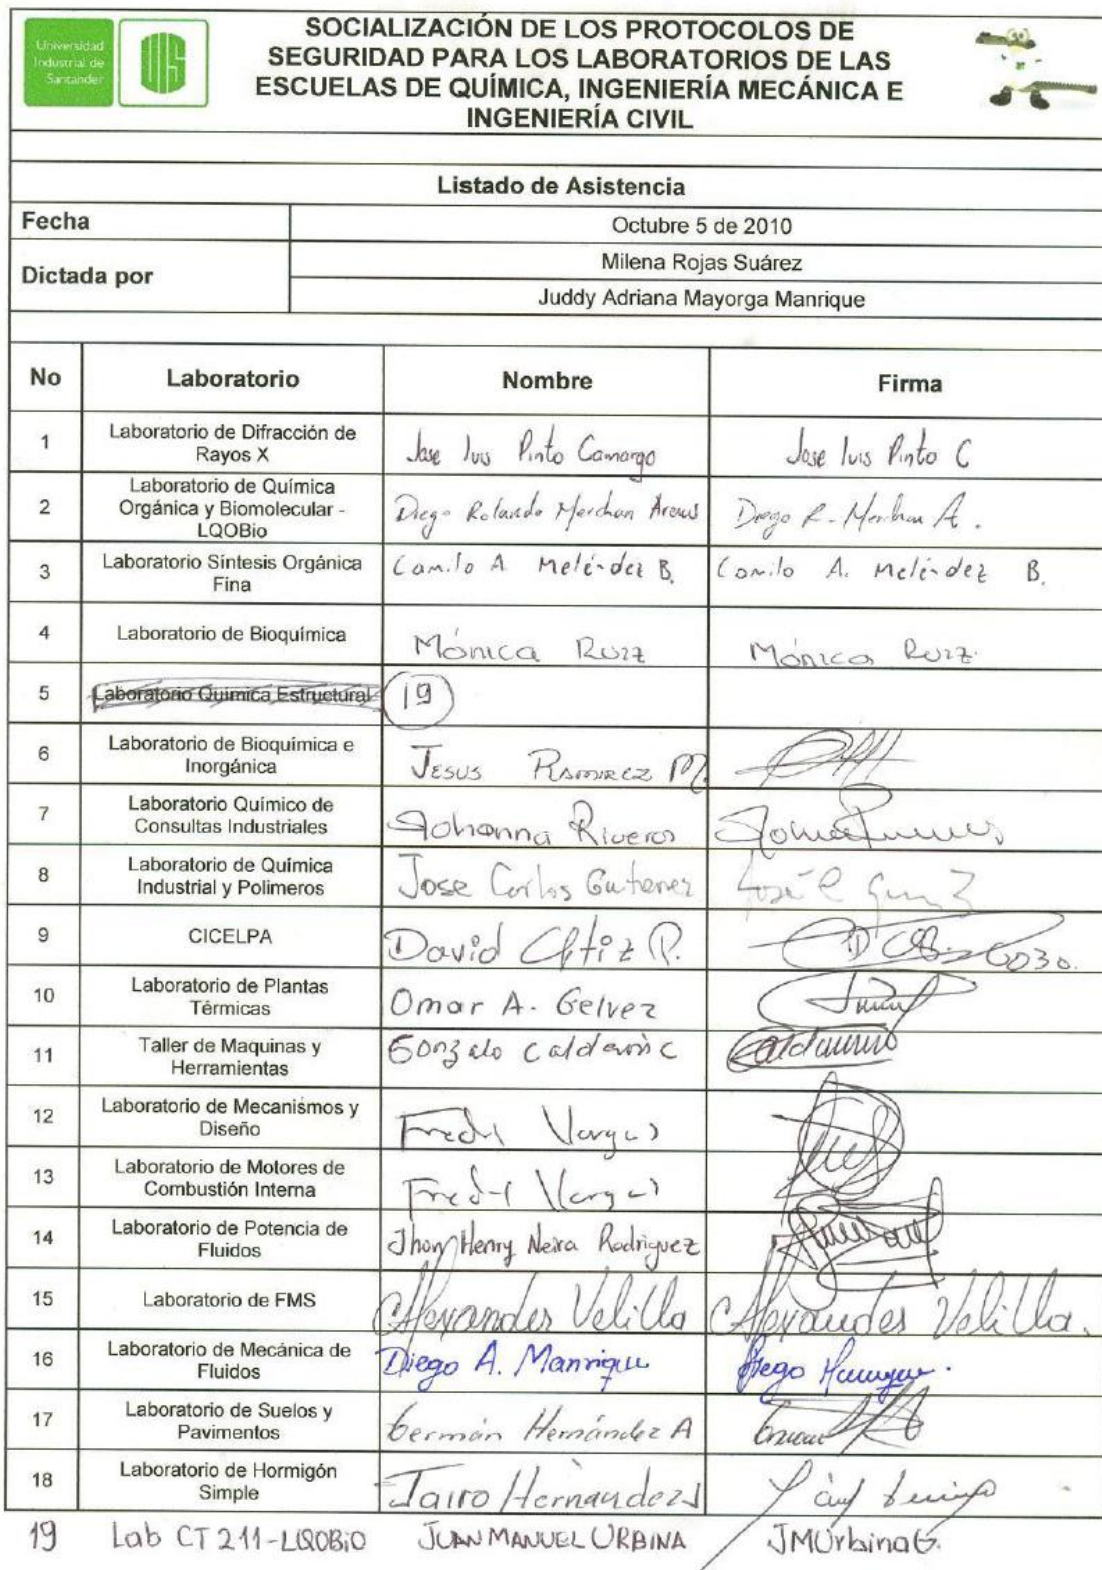 Universidad
Industrial de
Santander
UIS
SOCIALIZACIÓN DE LOS PROTOCOLOS DE
SEGURIDAD PARA LOS LABORATORIOS DE LAS
ESCUELAS DE QUÍMICA, INGENIERÍA MECÁNICA E
INGENIERÍA CIVIL
Listado de Asistencia
Fecha Octubre 5 de 2010
Dictada por Milena Rojas Suárez
Juddy Adriana Mayorga Manrique
No Laboratorio Nombre Firma
1 Laboratorio de Difracción de
Rayos X Jose luis Pinto Camargo Jose luis Pinto C
2 Laboratorio de Química
Orgánica y Biomolecular -
LQOBio Diego Rolando Merchan Arenas Diego R. Merchan A.
3 Laboratorio Síntesis Orgánica
Fina Camilo A Meléndez B. Camilo A. Meléndez B.
4 Laboratorio de Bioquímica Mónica Ruiz Mónica Ruiz.
5 Laboratorio Quimica Estructural 19
6 Laboratorio de Bioquímica e
Inorgánica Jesus Ramirez M.
7 Laboratorio Químico de
Consultas Industriales Johanna Riveros
8 Laboratorio de Química
Industrial y Polimeros Jose Carlos Gutierrez
9 CICELPA David Ortiz P.
10 Laboratorio de Plantas
Térmicas Omar A. Gelvez
11 Taller de Maquinas y
Herramientas Gonzalo Calderón C
12 Laboratorio de Mecanismos y
Diseño Fredy Vargas
13 Laboratorio de Motores de
Combustión Interna Fredy Vargas
14 Laboratorio de Potencia de
Fluidos Jhon Henry Neira Rodriguez
15 Laboratorio de FMS Alexander Velilla Alexander Velilla.
16 Laboratorio de Mecánica de
Fluidos Diego A. Manrique Diego Manrique.
17 Laboratorio de Suelos y
Pavimentos Germán Hernández A
18 Laboratorio de Hormigón
Simple Jairo Hernandez J
19 Lab CT 211-LQOBio JUAN MANUEL URBINA JMUrbinaG.